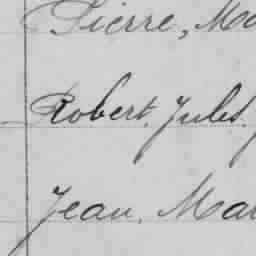 Pierre, Ma
Robert, Jules.
Jean, Mar